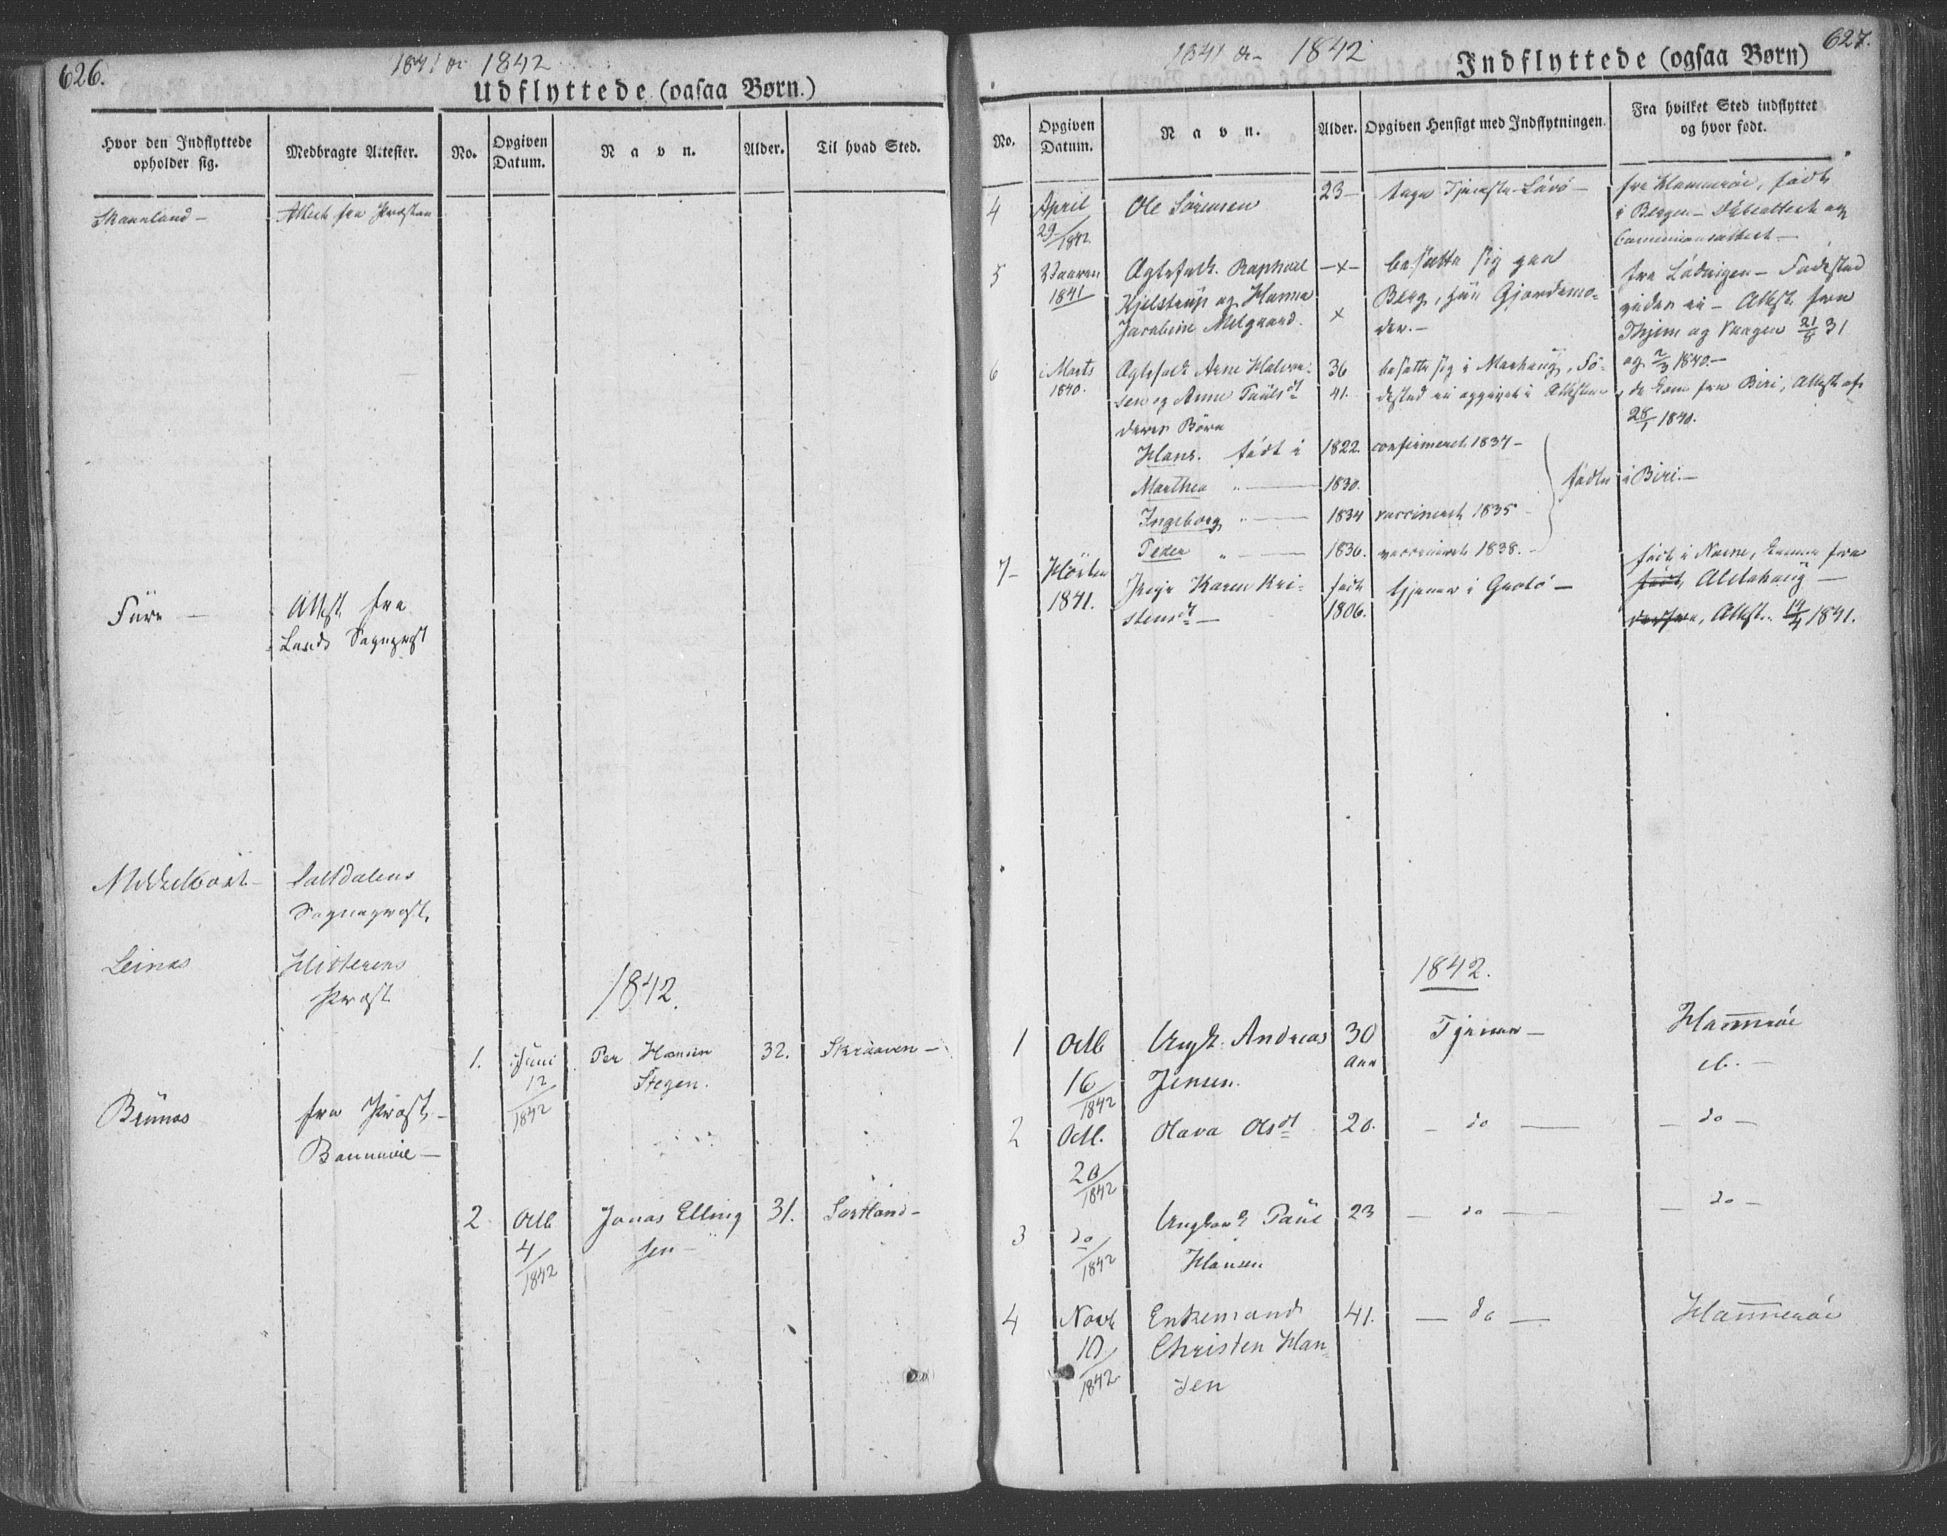 626.
1841 og 1842
Udflyttede (ogsaa Børn.)
Hvor den Indflyttede opholder sig.
Medbragte Attester.
No.
Opgiven Datum.
Navn.
Alder.
Til hvad Sted.
Skaanland —
Attest fra Præsten
Füre —
Attest fra
Lands Sognepræst
Mikkelbost —
Saltdalens
Sognepræst.
Leines
Hitterens
Præst
1842.
1.
Juni
12/1842
Per Hansen
Stegen.
32.
Skraaven —
Brunes
fra Præst
2
Octb
4/1842
Jonas Elling
sen —
31.
Sortland —
627.
1841 og 1842
Indflyttede (ogsaa Børn)
No.
Opgiven Datum.
Navn.
Alder.
Opgiven Hensigt med Indflytningen.
Fra hvilket Sted indflyttet og hvor født.
4
April
29/1842
Ole Sørensen
23 —
tage Tjeneste
fra Hammerøe, født
i Bergen —
5
Vaaren
1841
Ægtefolk Raphael
Kjelstrup og Hanna
Jacobine Melgaard.
—x—
x
besætte sig paa
Berg, hun Gjordemo-
der. —
fra Lödingen — Fødested
viides ei — Attest fra
og Vaagen 21/8 31
og 2/3 1840 —
6
Marts
1840.
Ægtefolk Arne Halvor-
sen og Anne Paulsdt
deres Børn
36
41.
besætte sig i
destad ei opgivet i Attesten
fra Biri, Attest af
28/1 1840.
Hans. født i 1822. confirmeret 1837 —
Marthea " — 1830.
Ingeborg " — 1834 vaccineret 1835 —
Peder " — 1836. vaccineret 1838. —
födte i Biri. —
7 —
Hösten
1841.
Pige Karen Kri-
stensdt —
født
1806.
tjener i Grøtö —
født i Næsne, komme fra
født, Alstahaug —
Attest. 14/4 1841.
1842.
1
Octb
16/1842
Ungk. Andreas
Jensen.
30
Aar
Tjener —
Hammerøe
2
Octb.
20/1842
Olava Olsdt
20.
— do —
— do —
3
do/1842
Ungkarl Paul
Hansen
23
— do —
— do —
4
Novb
10/1842
Enkemand
Christen Han-
sen
41.
— do —
Hammerøe